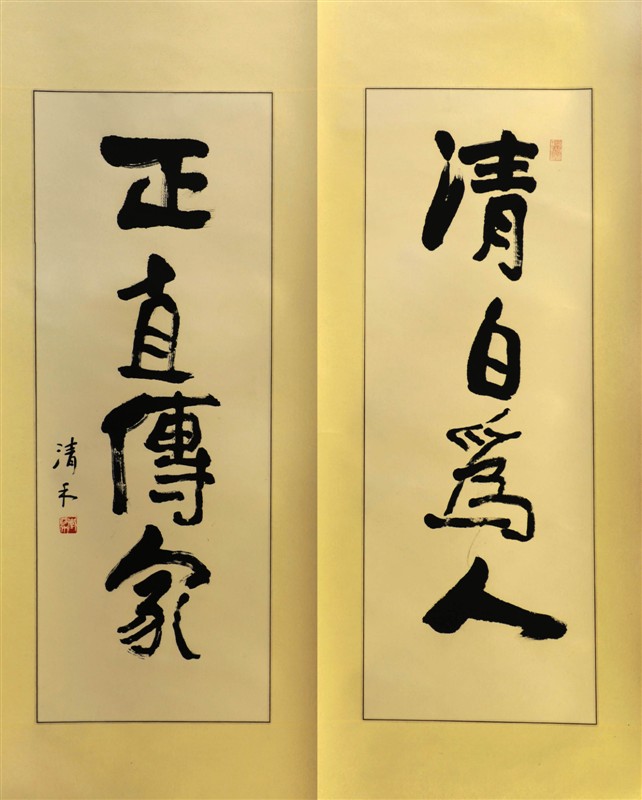 清白爲人
正直傳家
清禾